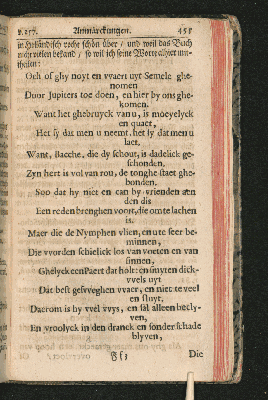 v.257. Anmärckungen. 451
in Holländisch recht schön über / und weil das Buch
nicht vielen bekand / so wil ich seine Worte allhier
Och of ghy noyt en vvaert uyt Semele ghe-
nomen
Door Jupiters toe doen, en hier by ons ghe-
komen.
Want het ghebruyck van u, is moeyelyck
en quaet,
Het sy dat men u neemt, het sy dat men u
laet.
Want, Bacche, die dy schout, is dadelick ge-
schonden,
Zyn hert is vol van rou, de tonghe staet ghe-
bonden.
Soo dat hy niet en can by vrienden aen
den dis
Een reden brenghen voort, die om te lachen
is.
Maer die de Nymphen vlien, en ute seer be-
minnen,
Die vvorden schielick los van voeten en van
sinnen,
Ghelyck een Paert dat holt: en snyten dick-
vvels uyt
Dat best gesvveghen vvaer, en niet te veel
en sluyt.
Daerom is hy vvel vvys, en sal alleen bely-
ven,
En vroolyck in den dranck en sonder schade
blyven,
Ff3 Die